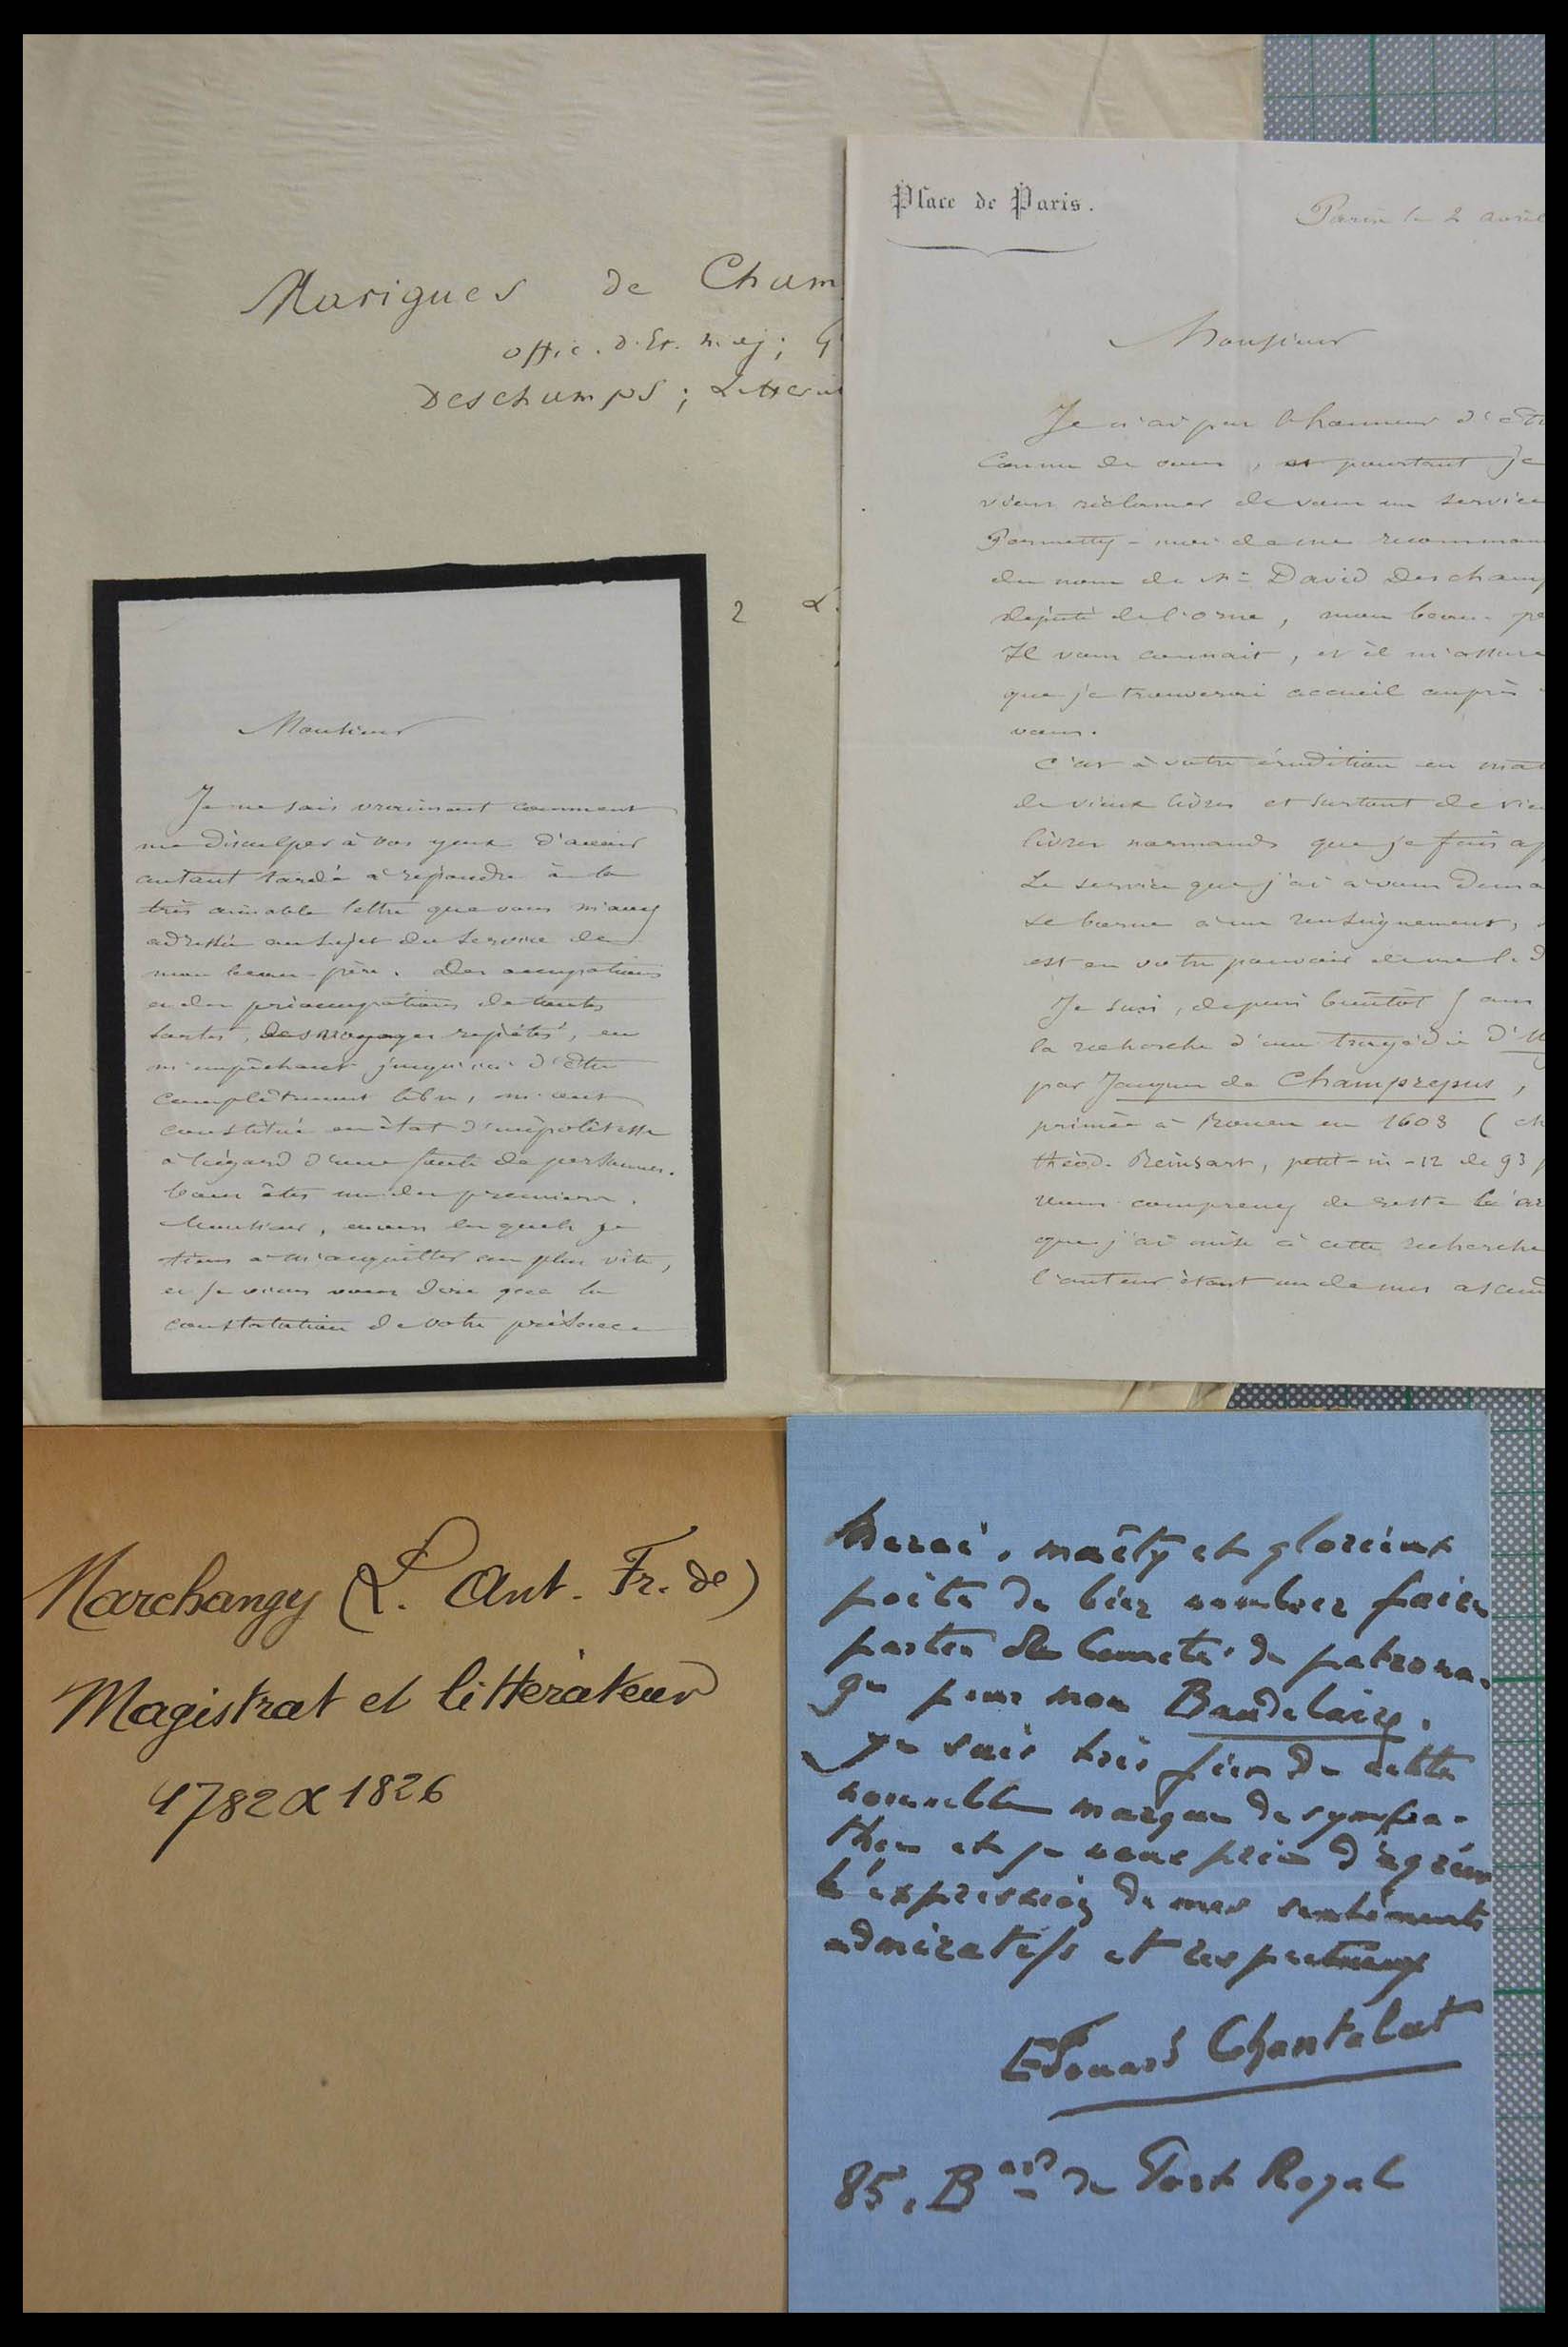 Marigues de Cham
offic. d'Et. maj; G
Deschamps; Littérat
2 L.
Place de Paris.
Paris le 2 avril
Monsieur
Je n'ai pas l'honneur d'êtr
connu de vous, et pourtant je
viens réclamer de vous un service
Permettez-moi de me recomman
du nom de Mr David Deschamp
député de l'Orne, mon beau-pè
Il vous connait, et il m'assure
que je trouverai accueil auprès
vous.
C'est à votre érudition en mat
de vieux livres et surtout de vie
livres normands que je fais ap
Le service que j'ai à vous dema
se borne à un renseignement,
est en votre pouvoir de me le d
Je suis, depuis bientôt 5 ans
la recherche d'une tragédie d'U
par Jacques de Champrepus,
primée à Rouen en 1603 (ch
théod. Reinsart, petit-in-12 de 93 p
vous comprenez de reste l'ar
que j'ai mise à cette recherche
l'auteur étant un de mes ascend
Monsieur
Je ne sais vraiment comment
me disculper à vos yeux d'avoir
autant tardé à répondre à la
très aimable lettre que vous m'avez
adressée au sujet du service de
mon beau-père. Des occupations
et des préoccupations de toutes
sortes, des voyages répétés, en
m'empêchant jusqu'ici d'être
complètement libre, m'ont
constitué en état d'impolitesse
à l'égard d'une foule de personnes.
Vous êtes un des premiers,
Monsieur, envers lesquels je
tiens à m'acquitter au plus vite,
et je viens vous dire que la
constatation de votre présence
Marchangy (L. Ant. Fr. de)
Magistrat et littérateur
1782 X 1826
Merci, maître et glorieux
poète de bien vouloir faire
partie du Comité de patrona-
ge pour mon Baudelaire.
Je suis très fier de cette
nouvelle marque de sympa-
thie et je vous prie d'agréer
l'expression de mes sentiments
admiratifs et respectueux
Edouard Chantalat
85, Bard de Port Royal